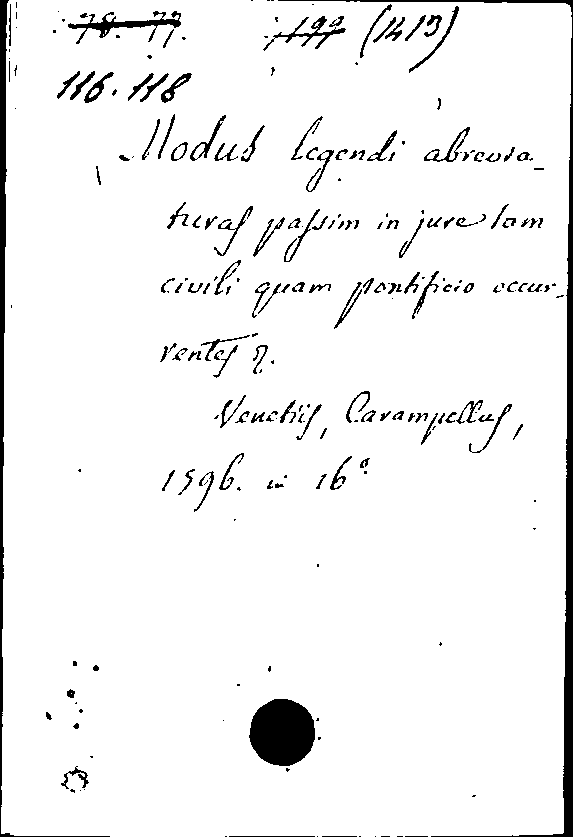 78. 77. 1199 (1413)
116.118
Modus legendi abrevia-
turas passim in jure tam
civili quam pontificio occur-
rentes
Venetiis, Carampellus,
1596. in 16º